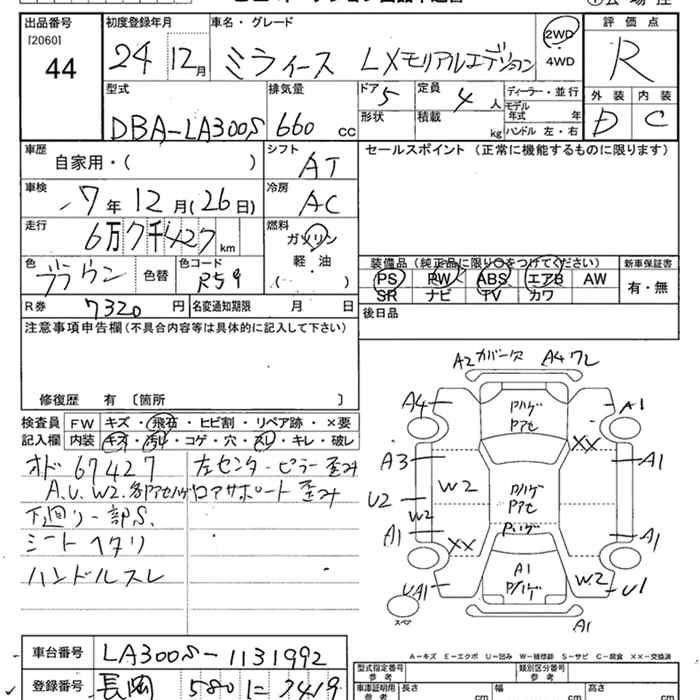 出品番号 初度登録年月 車名・グレード 評価点
[2060]
44 24 12月 ミライース LXモリアルエデション 2WD R
・4WD
型式 排気量 ドア 5 定員 4 人 ディーラー・並行 外装 内装
DBA-LA300S 660 cc 形状 積載 kg モデル年式 年 D C
ハンドル 左・右
車歴 自家用・( ) シフト AT セールスポイント (正常に機能するものに限ります)
車検 7年 12月(26日) 冷房 AC
走行 6万7千427 km 燃料 ガソリン
軽・油
( )
色 ブラウン 色替 色コード R59 装備品(純正品に限り○をつけてください) 新車保証書
PS PW ABS エアB AW 有・無
SR ナビ TV カワ
R券 7320円 名変通知期限 月 日 後日品
注意事項申告欄(不具合内容等は具体的に記入して下さい)
修復歴 有 〔箇所 〕
A2 ガバース A4 ワレ
検査員 FW キズ・飛石・ヒビ割・リペア跡・×要
記入欄 内装 キズ・汚れ・コゲ・穴・スレ・キレ・破レ
A4 A1
P/ハゲ
Pアセ
XX
オド 67427 左センターピラー歪み
A3 A1
A.U.W2.多 Pアセハゲ ロアサポート歪み
W2 P/ハゲ
Pアセ
U2 W2
下廻り一部S.
P/ハゲ
A1 A1
シートヘタリ
XX
ハンドルスレ
A1
P/ハゲ
W2
UA1 U1
スペア
A1
A-キズ E-エクボ U-凹み W-補修跡 S-サビ C-腐食 XX-交換済
車台番号 LA300S-1131992
型式指定番号 参考 類別区分番号 参考
登録番号 長岡 580 に 7419
車庫証明用 参考 長さ cm 幅 cm 高さ cm